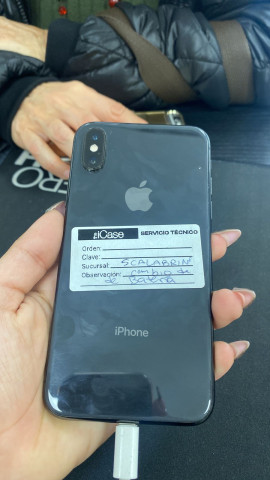 iCase SERVICIO TÉCNICO
Orden:
Clave:
Sucursal: SCALABRIN
Observación: cambio de
de Batería
iPhone